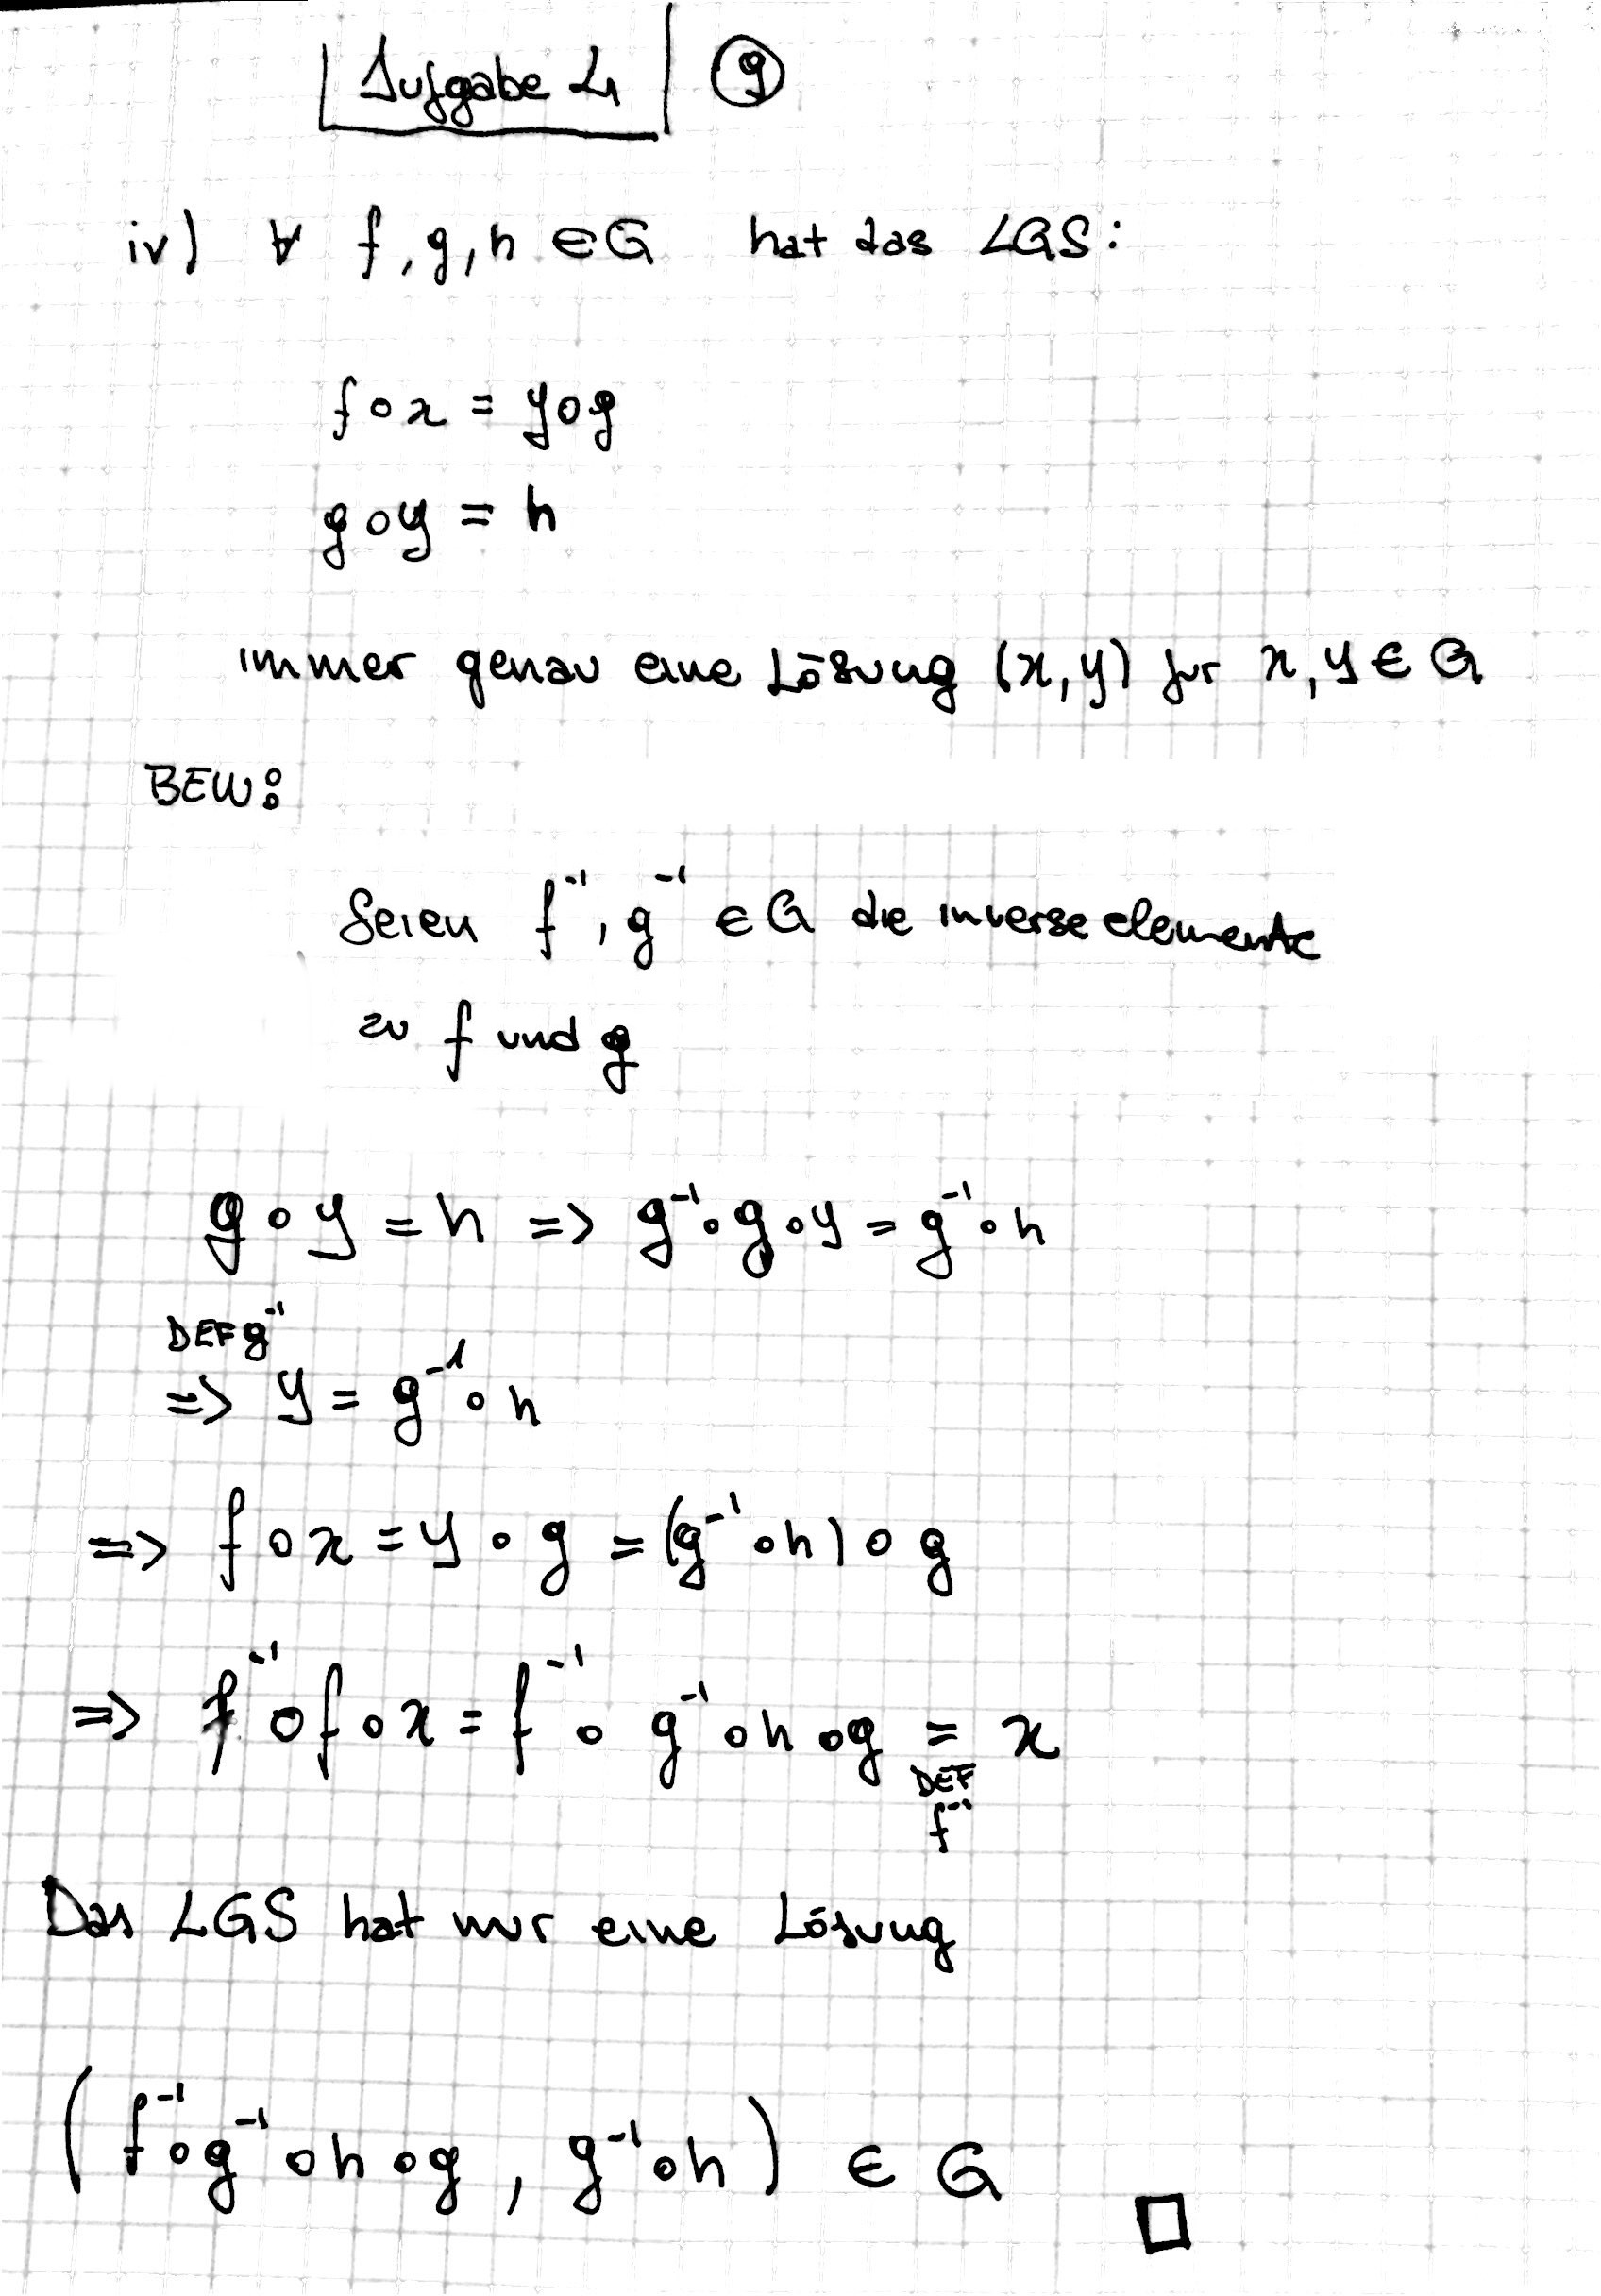 Aufgabe 4 9
iv) ∀ f, g, h ∈ G hat das LGS:
f ∘ x = y ∘ g
g ∘ y = h
immer genau eine Lösung (x, y) fur x, y ∈ G
BEW:
Seien f⁻¹, g⁻¹ ∈ G die inverse elemente
zu f und g
g ∘ y = h => g⁻¹ ∘ g ∘ y = g⁻¹ ∘ h
DEF g⁻¹
=> y = g⁻¹ ∘ h
=> f ∘ x = y ∘ g = (g⁻¹ ∘ h) ∘ g
=> f⁻¹ ∘ f ∘ x = f⁻¹ ∘ g⁻¹ ∘ h ∘ g = x
DEF
f⁻¹
Das LGS hat nur eine Lösung
(f⁻¹ ∘ g⁻¹ ∘ h ∘ g, g⁻¹ ∘ h) ∈ G □